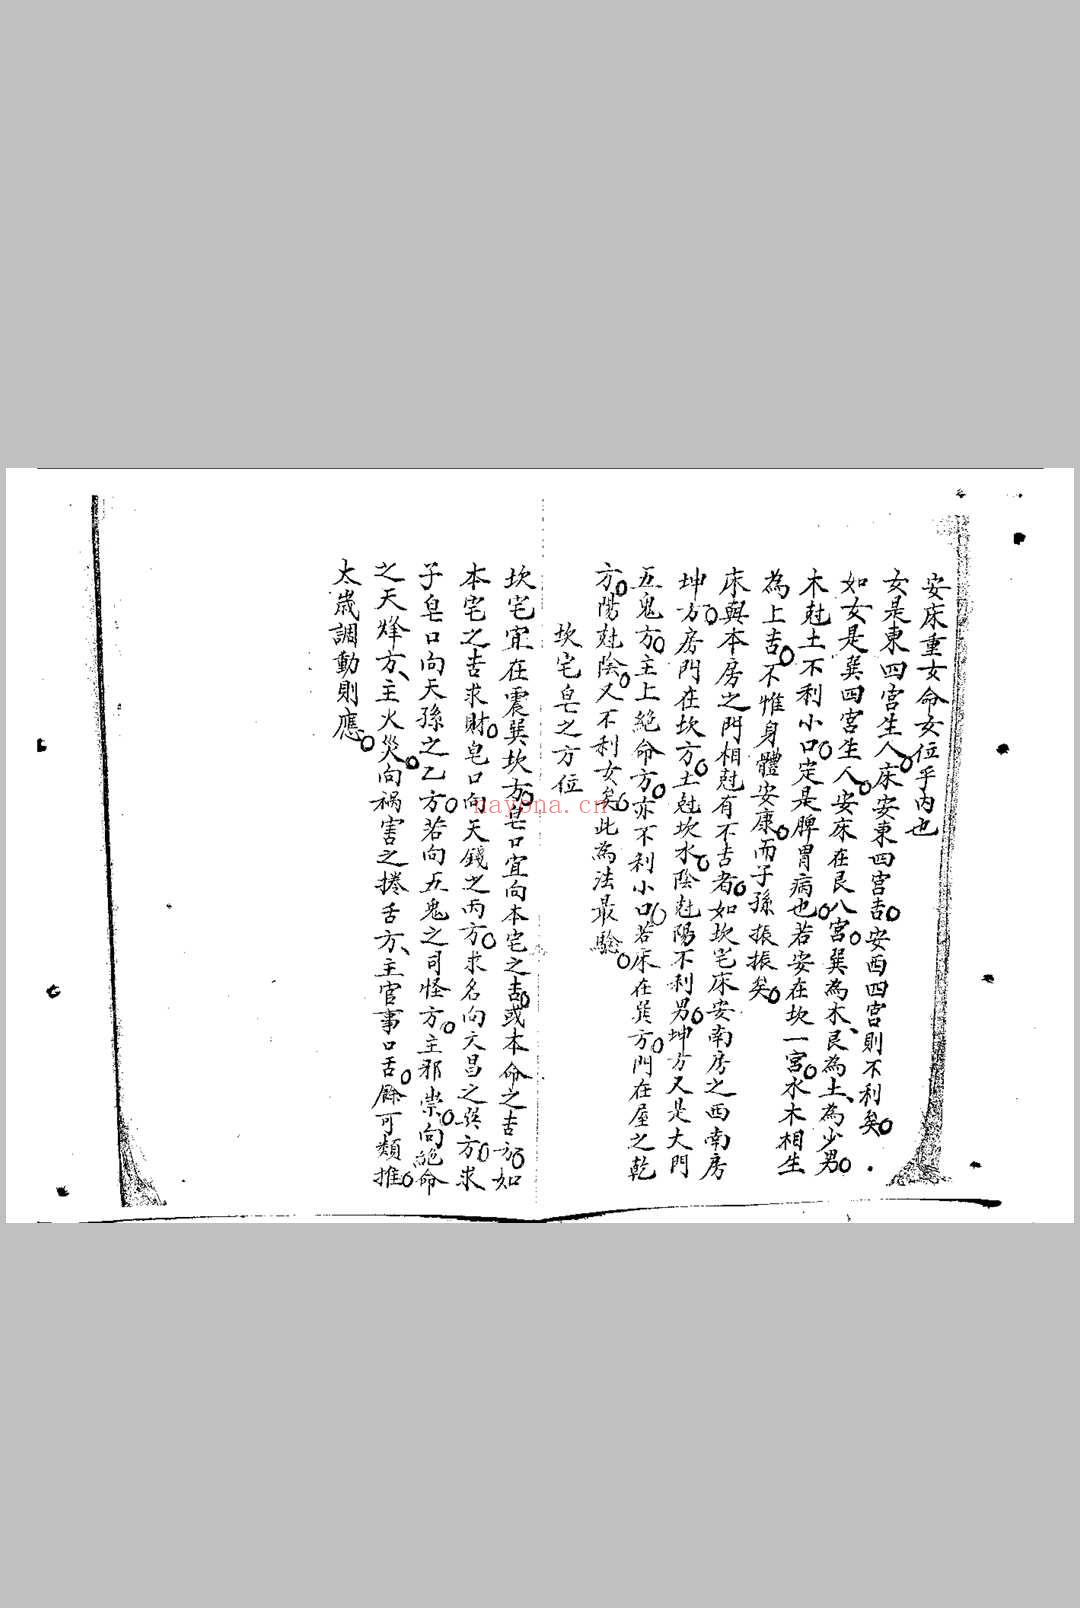 安床重女命女位乎內也
女是東四宮生人床安東四宮吉安西四宮則不利矣
如女是巽四宮生人安床在艮八宮巽為木、艮為土、為少男
木尅土不利小口定是脾胃病也若安在坎一宮水木相生
為上吉不惟身體安康而子孫振振矣
床與本房之門相尅有不吉者如坎宅床安南房之西南房
坤方房門在坎方土尅坎水陰尅陽不利男坤方又是大門
五鬼方主上絕命方亦不利小口若床在巽方門在屋之乾
方陽尅陰又不利女矣此為法最驗
坎宅皂之方位
坎宅宜在震巽坎方皂口宜向本宅之吉或本命之吉方如
本宅之吉求財皂口向天錢之丙方求名向文昌之巽方求
子皂口向天孫之乙方若向五鬼之司怪方主邪祟向絕命
之天烽方、主火災向禍害之捲舌方、主官事口舌餘可類推
太歲調動則應
nayona.cn